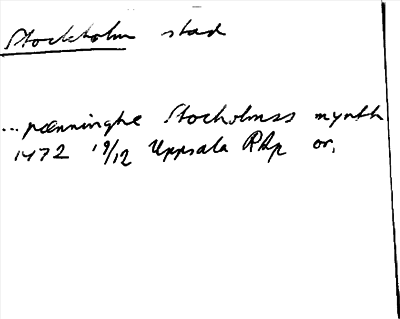 Stockholm stad
...pænninghe Stocholmss mynth
1472 19/12 Uppsala RAp or.